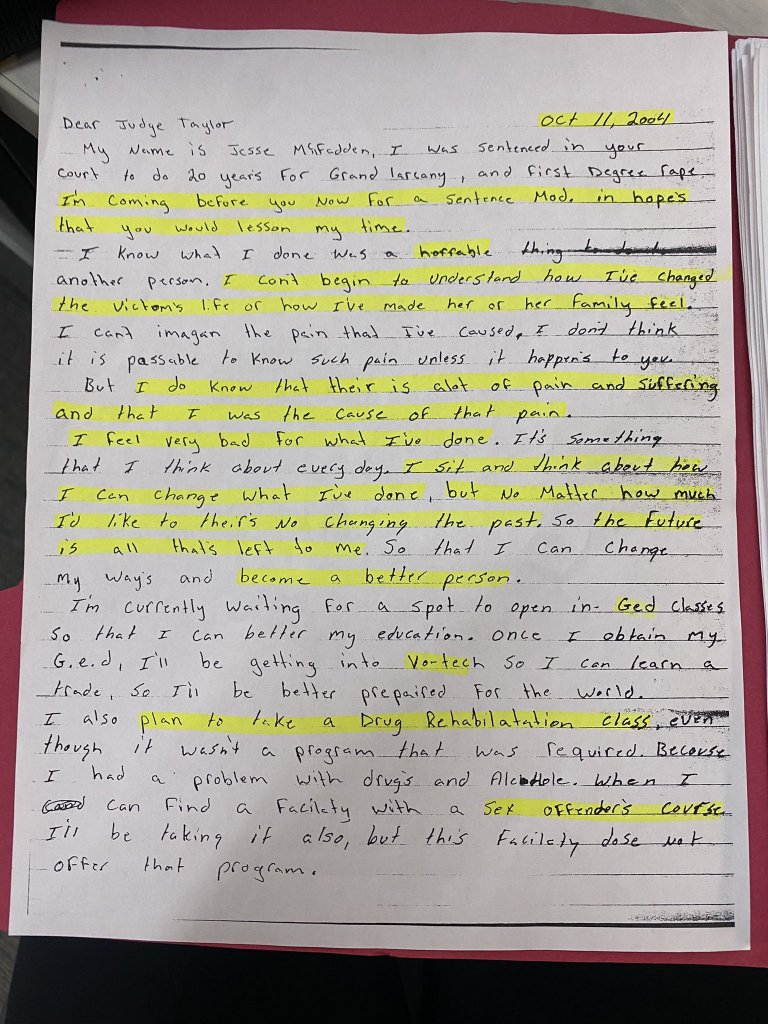 Oct 11, 2004
Dear Judge Taylor
My Name is Jesse McFadden, I was sentenced in your
court to do 20 years for Grand larcany, and first Degree rape.
I'm coming before you now for a sentence Mod. in hope's
that you would lesson my time.
I know what I done was a horrable thing to do to
another person. I can't begin to understand how I've changed
the victom's life or how I've made her or her family feel.
I can't imagan the pain that I've caused, I don't think
it is passable to know such pain unless it happen's to you.
But I do know that their is alot of pain and suffering
and that I was the cause of that pain.
I feel very bad for what I've done. It's something
that I think about every day. I sit and think about how
I can change what I've done, but no matter how much
I'd like to their's no changing the past. So the future
is all that's left to me. So that I can change
my way's and become a better person.
I'm currently waiting for a spot to open in- Ged classes
so that I can better my education. once I obtain my
G.e.d, I'll be getting into Vo-tech so I can learn a
trade, so I'll be better prepaired for the world.
I also plan to take a Drug Rehabilatation class, even
though it wasn't a program that was required. Because
I had a problem with drug's and Alcohole. When I
can find a facilaty with a sex offender's course
I'll be taking it also, but this facilety dose not
offer that program.